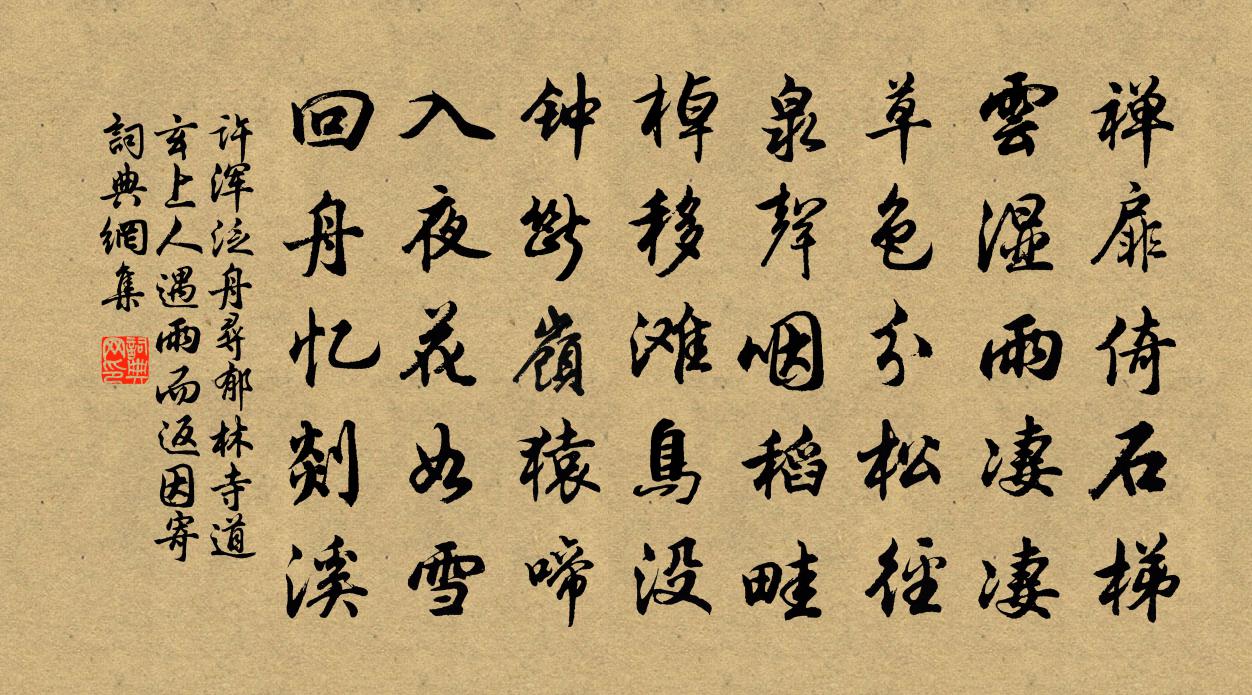 禅扉倚石梯
雲湿雨凄凄
草色分松徑
泉聲咽稻畦
棹移滩鳥没
钟斷嶺猿啼
入夜花如雪
回舟忆剡溪
许浑泛舟尋郁林寺道
玄上人遇雨而返因寄
詞典網集
詞典网印